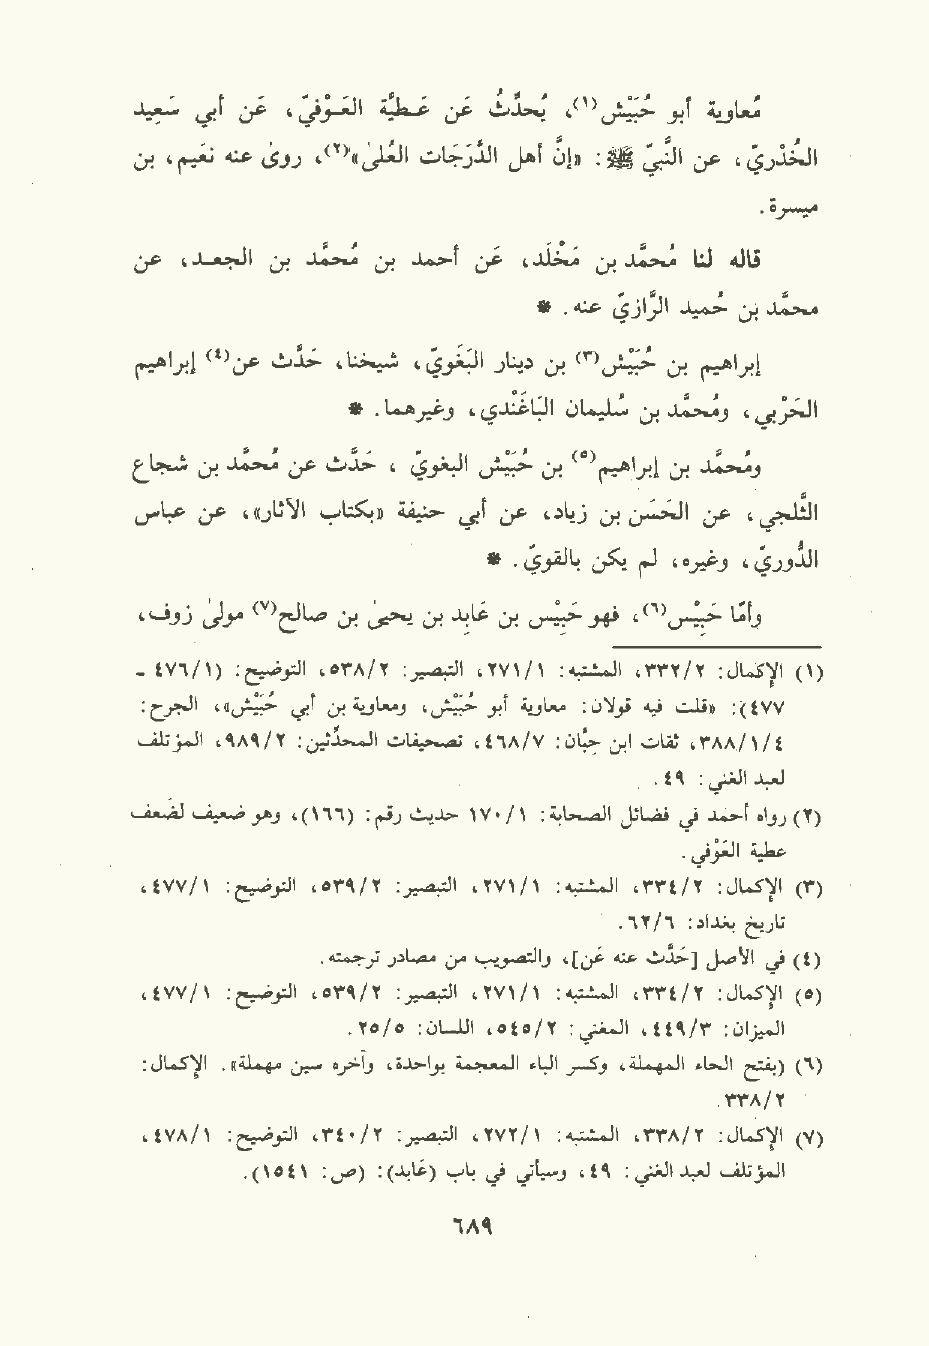 مُعاوية أبو حُبَيْش(١)، يُحدِّث عن عَـطيَّة العَـوْفيّ، عَن أبي سَعِيد
الخُدْريّ، عن النَّبيّ ﷺ: «إنَّ أهل الدَّرَجَات العُلىٰ»(٢)، روىٰ عنه نعَيم، بن
ميسرة.
قاله لنا مُحمَّد بن مَخْلَد، عَن أحمد بن مُحمَّد بن الجعـد، عن
محمَّد بن حُميد الرَّازيّ عنه. *
إبراهيم بن حُبَيْش(٣) بن دينار البَغَويّ، شيخنا، حَدَّث عن(٤) إبراهيم
الحَرْبي، ومُحمَّد بن سُليمان البَاغَنْدي، وغيرهما. *
ومُحمَّد بن إبراهيم(٥) بن حُبَيْش البغويّ ، حَدَّث عن مُحمَّد بن شجاع
الثَّلجي، عن الحَسَن بن زياد، عن أبي حنيفة «بكتاب الآثار»، عن عباس
الدُّوريّ، وغيره، لم يكن بالقويّ. *
وأمَّا حَبِيْس(٦)، فهو حَبِيْس بن عَابِد بن يحيىٰ بن صالح(٧) مولىٰ زوف،
(١) الإكمال: ٣٣٢/٢، المشتبه: ٢٧١/١، التبصير: ٥٣٨/٢، التوضيح: (٤٧٦/١ ـ
٤٧٧): «قلت فيه قولان: معاوية أبو حُبَيْش، ومعاوية بن أبي حُبَيْش»، الجرح:
٣٨٨/١/٤، ثقات ابن حِبَّان: ٤٦٨/٧، تصحيفات المحدِّثين: ٩٨٩/٢، المؤتلف
لعبد الغني: ٤٩.
(٢) رواه أحمد في فضائل الصحابة: ١٧٠/١ حديث رقم: (١٦٦)، وهو ضعيف لضَعف
عطية العَوْفي.
(٣) الإكمال: ٣٣٤/٢، المشتبه: ٢٧١/١، التبصير: ٥٣٩/٢، التوضيح: ٤٧٧/١،
تاريخ بغداد: ٦٢/٦.
(٤) في الأصل [حَدَّث عنه عَن]، والتصويب من مصادر ترجمته.
(٥) الإكمال: ٣٣٤/٢، المشتبه: ٢٧١/١، التبصير: ٥٣٩/٢، التوضيح: ٤٧٧/١،
الميزان: ٤٤٩/٣، المغني: ٥٤٥/٢، اللسان: ٢٥/٥.
(٦) (بفتح الحاء المهملة، وكسر الباء المعجمة بواحدة، وآخره سين مهملة». الإكمال:
٣٣٨/٢.
(٧) الإكمال: ٣٣٨/٢، المشتبه: ٢٧٢/١، التبصير: ٣٤٠/٢، التوضيح: ٤٧٨/١،
المؤتلف لعبد الغني: ٤٩، وسيأتي في باب (عَابد): (ص: ١٥٤١).
٦٨٩